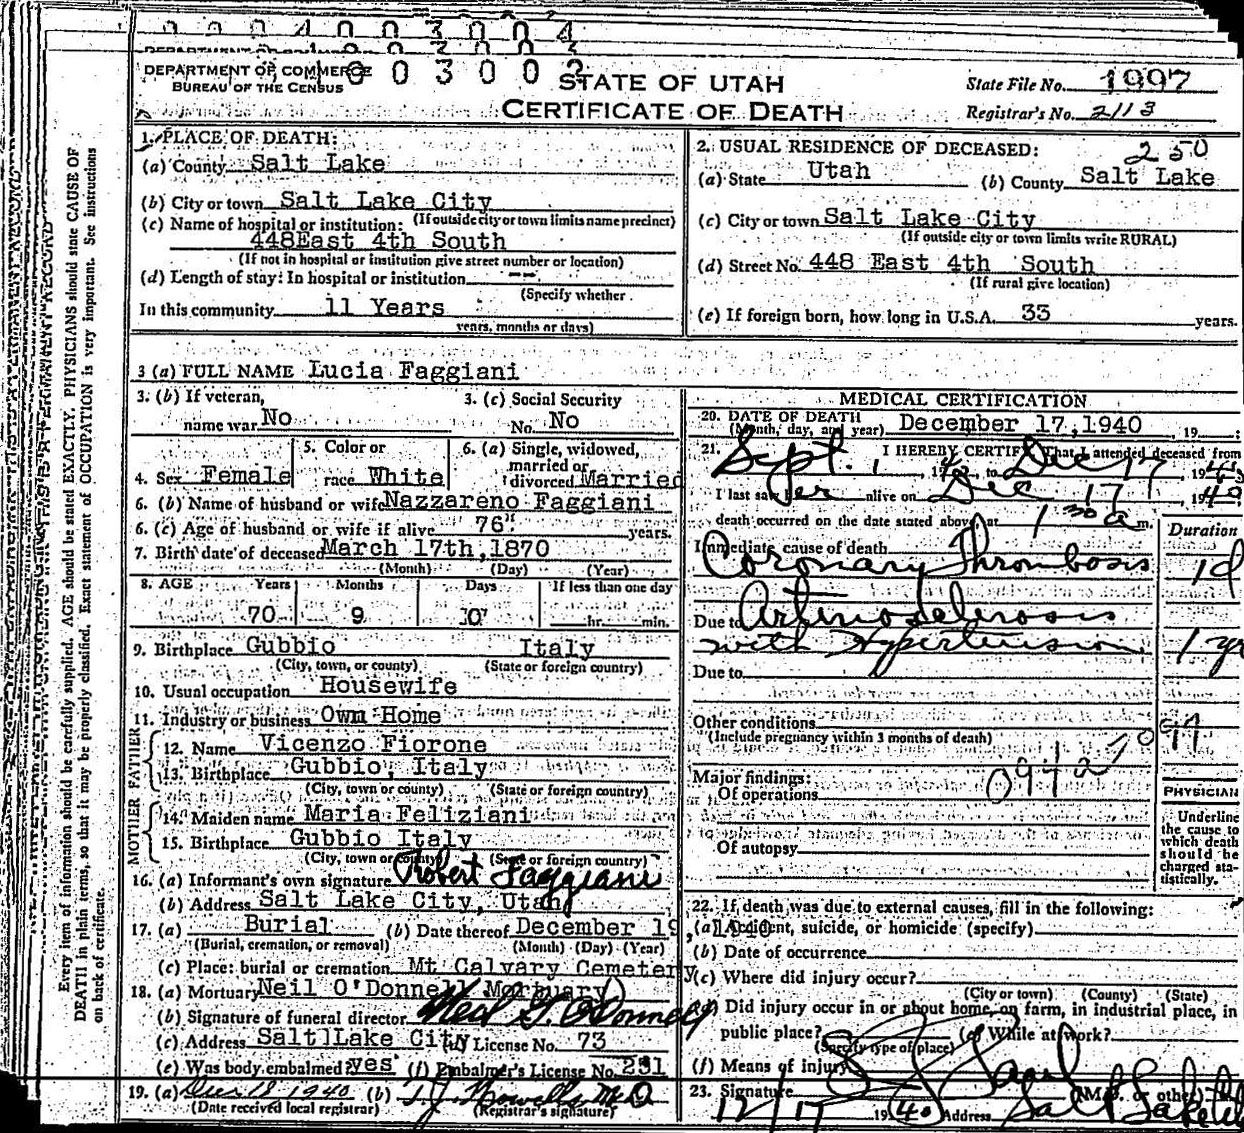 0 0 0 4 0 0 3 0 0 4
DEPARTMENT OF COMMERCE
BUREAU OF THE CENSUS
0 0 3 0 0
STATE OF UTAH
CERTIFICATE OF DEATH
State File No. 1997
Registrar's No. 2113
Every item of information should be carefully supplied. AGE should be stated EXACTLY. PHYSICIANS should state CAUSE OF
DEATH in plain terms, so that it may be properly classified. Exact statement of OCCUPATION is very important. See instructions
on back of certificate.
1. PLACE OF DEATH:
(a) County Salt Lake
(b) City or town Salt Lake City
(If outside city or town limits name precinct)
(c) Name of hospital or institution:
448East 4th South
(If not in hospital or institution give street number or location)
(d) Length of stay: In hospital or institution --
(Specify whether
In this community 11 Years
years, months or days)
2. USUAL RESIDENCE OF DECEASED:
250
(a) State Utah (b) County Salt Lake
(c) City or town Salt Lake City
(If outside city or town limits write RURAL)
(d) Street No. 448 East 4th South
(If rural give location)
(e) If foreign born, how long in U.S.A. 33 years.
3 (a) FULL NAME Lucia Faggiani
3. (b) If veteran, name war No
3. (c) Social Security No. No
4. Sex Female
5. Color or race White
6. (a) Single, widowed, married or divorced Married
6. (b) Name of husband or wife Nazzareno Faggiani
6. (c) Age of husband or wife if alive 76 years.
7. Birth date of deceased March 17th, 1870
(Month) (Day) (Year)
8. AGE Years Months Days If less than one day
70 9 0 hr. min.
9. Birthplace Gubbio Italy
(City, town, or county) (State or foreign country)
10. Usual occupation Housewife
11. Industry or business Own Home
FATHER
12. Name Vicenzo Fiorone
13. Birthplace Gubbio, Italy
(City, town or county) (State or foreign country)
MOTHER
14. Maiden name Maria Feliziani
15. Birthplace Gubbio Italy
(City, town or county) (State or foreign country)
16. (a) Informant's own signature Robert Faggiani
(b) Address Salt Lake City, Utah
17. (a) Burial (b) Date thereof December 19, 1940
(Burial, cremation, or removal) (Month) (Day) (Year)
(c) Place: burial or cremation Mt Calvary Cemetery
18. (a) Mortuary Neil O'Donnell Mortuary
(b) Signature of funeral director Neil O'Donnell
(c) Address Salt Lake City (d) License No. 73
(e) Was body embalmed? yes (f) Embalmer's License No. 231
19. (a) Dec 18 1940 (b) T. J. Howells M.D.
(Date received local registrar) (Registrar's signature)
MEDICAL CERTIFICATION
20. DATE OF DEATH
(Month, day, and year) December 17, 1940 , 19 :
21. I HEREBY CERTIFY That I attended deceased from
Sept. 1 19 to Dec 17 19
I last saw her alive on Dec 17, 1940
death occurred on the date stated above at 1 30 a m.
Duration
Immediate cause of death
Coronary Thrombosis 1 d
Due to Arteriosclerosis
with Hypertension 1 yr
Due to
Other conditions
(Include pregnancy within 3 months of death)
94a
Major findings:
Of operations
Of autopsy
PHYSICIAN
Underline
the cause to
which death
should be
charged sta-
tistically.
22. If death was due to external causes, fill in the following:
(a) Accident, suicide, or homicide (specify)
(b) Date of occurrence
(c) Where did injury occur?
(City or town) (County) (State)
(d) Did injury occur in or about home, on farm, in industrial place, in
public place? (e) While at work?
(Specify type of place)
(f) Means of injury
23. Signature (M.D. or other)
12/17 1940 Address Salt Lake City